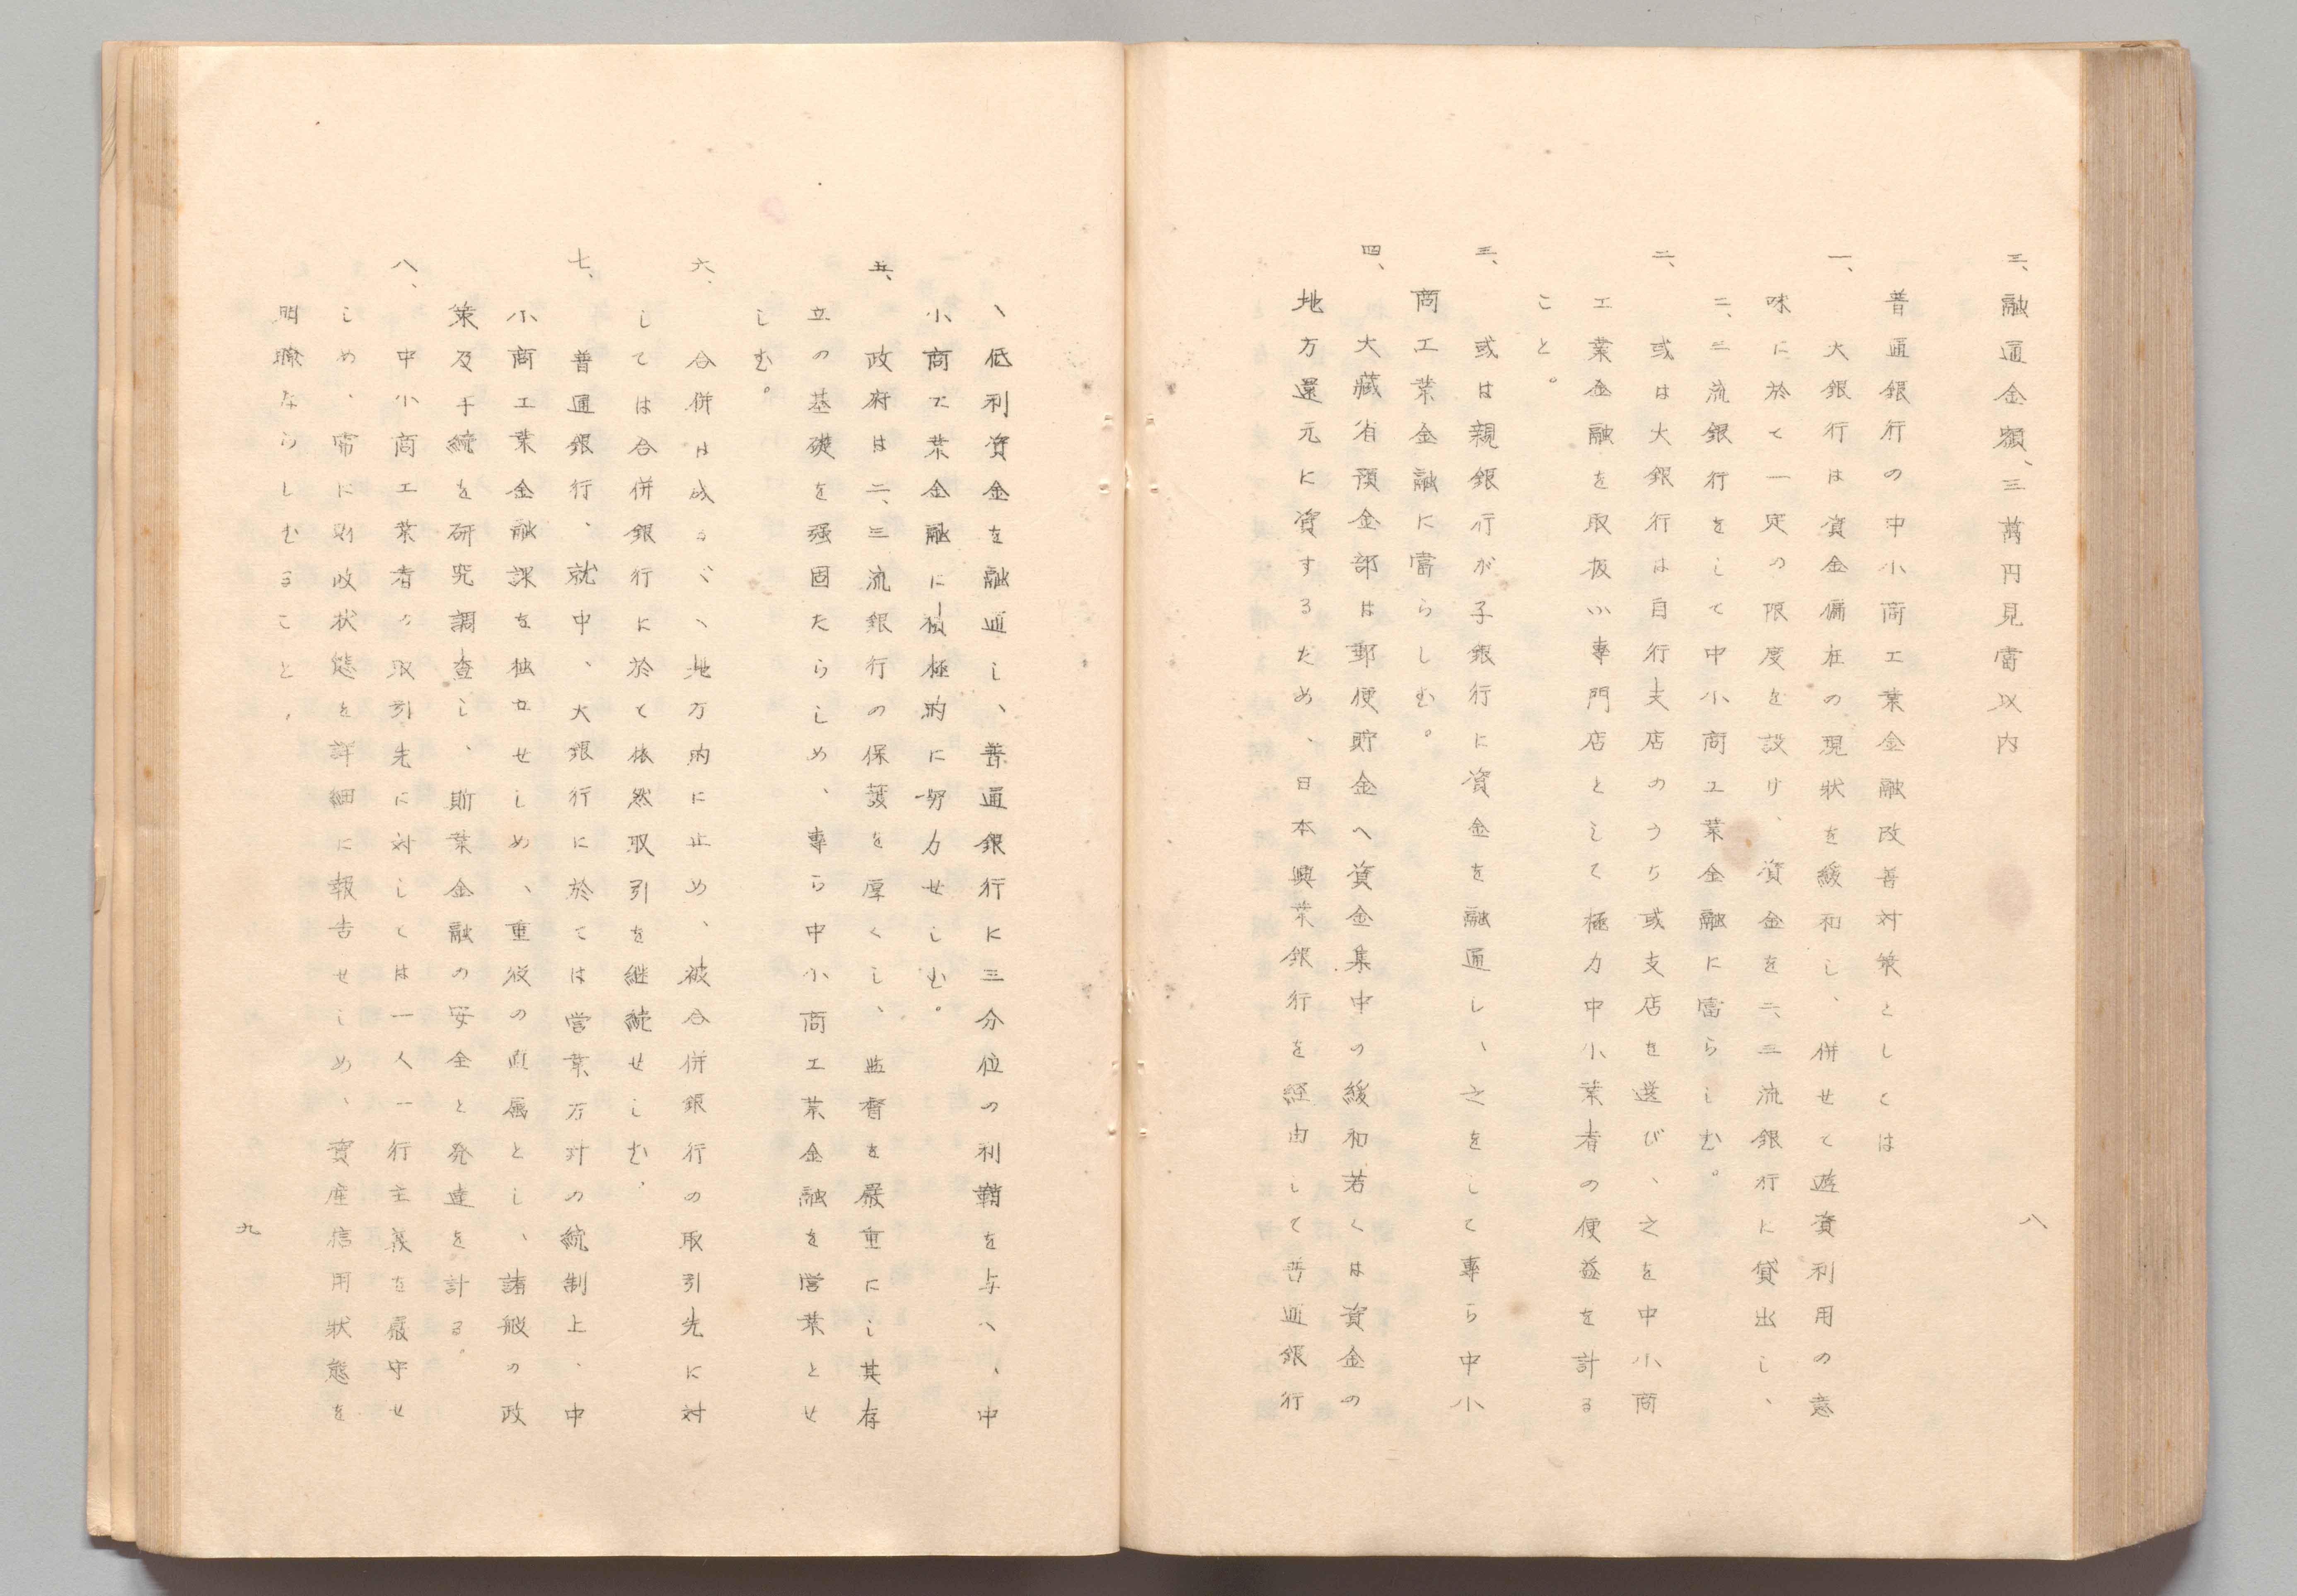 三、融通金額、三萬円見當以内
普通銀行の中小商工業金融改善対策としては
一、大銀行は資金偏在の現状を緩和し、併せて遊資利用の意
味に於て一定の限度を設け、資金を二、三流銀行に貸出し、
二、三流銀行をして中小商工業金融に當らしむ。
二、或は大銀行は自行支店のうち或支店を選び、之を中小商
工業金融を取扱ふ専門店として極力中小業者の便益を計る
こと。
三、或は親銀行が子銀行に資金を融通し、之をして專ら中小
商工業金融に當らしむ。
四、大藏省預金部は郵便貯金へ資金集中の緩和若くは資金の
地方還元に資するため、日本興業銀行を経由して普通銀行
八
へ低利資金を融通し、普通銀行に三分位の利鞘を与へ、中
小商工業金融に積極的に努力せしむ。
五、政府は二、三流銀行の保護を厚くし、監督を嚴重にし其存
立の基礎を强固たらしめ、專ら中小商工業金融を営業とせ
しむ。
六、合併は成るべく地方的に止め、被合併銀行の取引先に対
しては合併銀行に於て依然取引を継続せしむ。
七、普通銀行、就中、大銀行に於ては営業方針の統制上、中
小商工業金融課を独立せしめ、重役の直属とし、諸般の政
策及手続を研究調査し、斯業金融の安全と発達を計る。
八、中小商工業者の取引先に対しては一人一行主義を嚴守せ
しめ、常に財政状態を詳細に報告せしめ、資産信用狀態を
明瞭ならしむること、
九